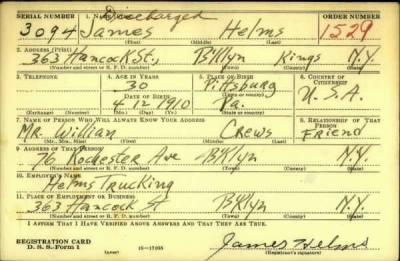 SERIAL NUMBER 1. NAME Discharged ORDER NUMBER
3094 James Helms 1529
(First) (Middle) (Last)
2. ADDRESS (Print)
363 Hancock St., B'klyn Kings N.Y.
(Number and street or R. F. D. number) (Town) (County) (State)
3. TELEPHONE 4. AGE IN YEARS 5. PLACE OF BIRTH 6. COUNTRY OF CITIZENSHIP
30 Pittsburg U.S.A.
DATE OF BIRTH (Town or county)
4 12 1910 Pa.
(Mo.) (Day) (Yr.) (State or country)
7. NAME OF PERSON WHO WILL ALWAYS KNOW YOUR ADDRESS 8. RELATIONSHIP OF THAT PERSON
Mr. Willian Crews Friend
(Mr., Mrs., Miss) (First) (Middle) (Last)
9. ADDRESS OF THAT PERSON
76 Rochester Ave BKlyn N.Y.
(Number and street or R. F. D. number) (Town) (County) (State)
10. EMPLOYER'S NAME
Helms Trucking
11. PLACE OF EMPLOYMENT OR BUSINESS
363 Hancock St BKlyn N.Y.
(Number and street or R. F. D. number) (Town) (County) (State)
I AFFIRM THAT I HAVE VERIFIED ABOVE ANSWERS AND THAT THEY ARE TRUE.
REGISTRATION CARD
D. S. S. Form 1 (over) 16—17105 James Helms
(Registrant's signature)